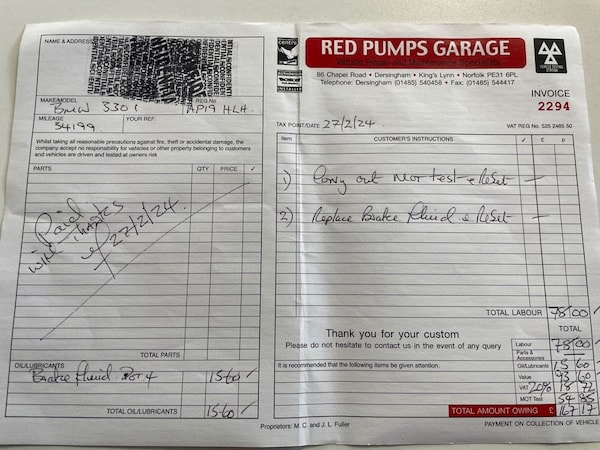 NAME & ADDRESS
MAKE/MODEL
REG.No
BMW 330i
AP19 HLH.
MILEAGE
YOUR REF.
34199
Whilst taking all reasonable precautions against fire, theft or accidental damage, the
company accept no responsibility for vehicles or other property belonging to customers
and vehicles are driven and tested at owners risk
PARTS QTY PRICE ✓
Paid
with thanks
27/2/24.
TOTAL PARTS
OIL/LUBRICANTS
Brake Fluid DOT 4 15-60 ✓
TOTAL OIL/LUBRICANTS 15-60 ✓
RED PUMPS GARAGE
Vehicle Repair and Maintenance Specialists
86 Chapel Road • Dersingham • King's Lynn • Norfolk PE31 6PL
Telephone: Dersingham (01485) 540458 • Fax: (01485) 544417
INVOICE
2294
TAX POINT/DATE 27/2/24
VAT REG No. 525 2485 50
Item CUSTOMER'S INSTRUCTIONS ✓ £ P
1) Carry out MOT test & Reset —
2) Replace Brake Fluid & Reset —
TOTAL LABOUR 78/00 ✓
TOTAL
Thank you for your custom
Please do not hesitate to contact us in the event of any query
Labour 78/00
Parts & Accessories
It is recommended that the following items be given attention:
Oil/Lubricants 15 60
Value 93 60
VAT 20% 18 72
MOT Test 54 85
TOTAL AMOUNT OWING £ 167 17
Proprietors: M. C. and J. L. Fuller
PAYMENT ON COLLECTION OF VEHICLE